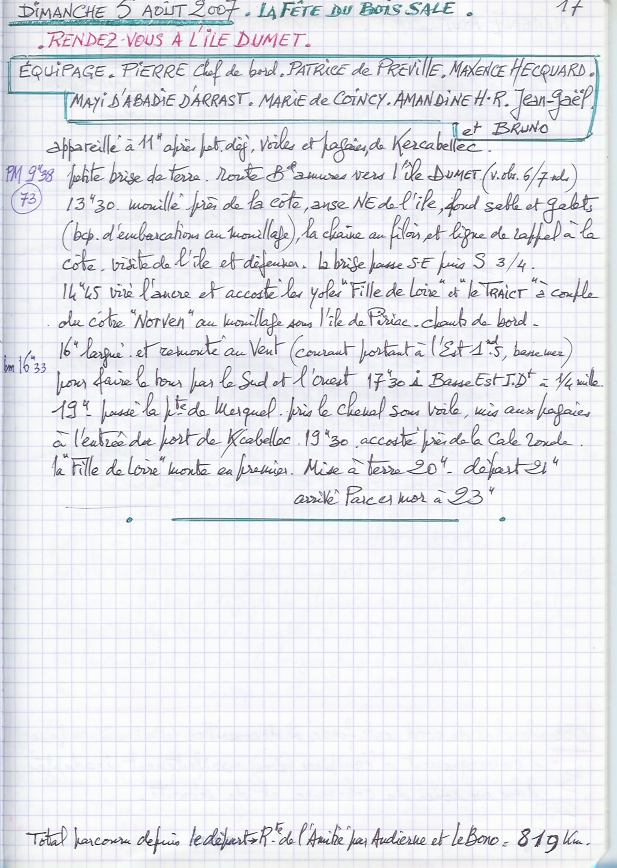 DIMANCHE 5 AOÛT 2007. LA FÊTE DU BOIS SALE. 17
. RENDEZ-VOUS A L'ÎLE DUMET.
ÉQUIPAGE. PIERRE chef de bord. PATRICE de PREVILLE. MAXENCE HECQUARD.
MAYI D'ABADIE D'ARRAST. MARIE de COINCY. AMANDINE H.R. Jean-Gaël.
et BRUNO
appareillé à 11H après pet. déj. Voiles et pagaies, de Kercabellec.
PM 9H38 petite brise de terre. route Bde amures vers l'île DUMET (v.obs. 6/7 nds)
73 13H30 mouillé près de la côte, anse NE de l'île, fond sable et galets
(bcp. d'embarcations au mouillage), la chaîne au filois, et ligne de rappel à la
côte. visite de l'île et déjeuner. la brise passe SE puis S 3/4.
14H45 viré l'ancre et accosté les yoles "Fille de Loire" et "le TRAICT" à couple
du cotre "NOTVEN" au mouillage sous l'île de Piriac. chants de bord.
16H largué et remonté au Vent (courant portant à l'Est 1nd,5, basse mer)
bm 16H33 pour faire le tour par le Sud et l'ouest 17H30 à Basse Est I.Dt à 1/4 mille
19H passé la pte de Merquel. pris le chenal sous voile, mis aux pagaies
à l'entrée du port de Kcabellec. 19H30 accosté près de la Cale ronde.
la "Fille de Loire" monte en premier. Mise à terre 20H. départ 21H
arrivé Parcesmor à 23H
Total parcouru depuis le départ Rte de l'Amitié par Audierne et le Bono = 819 Km.